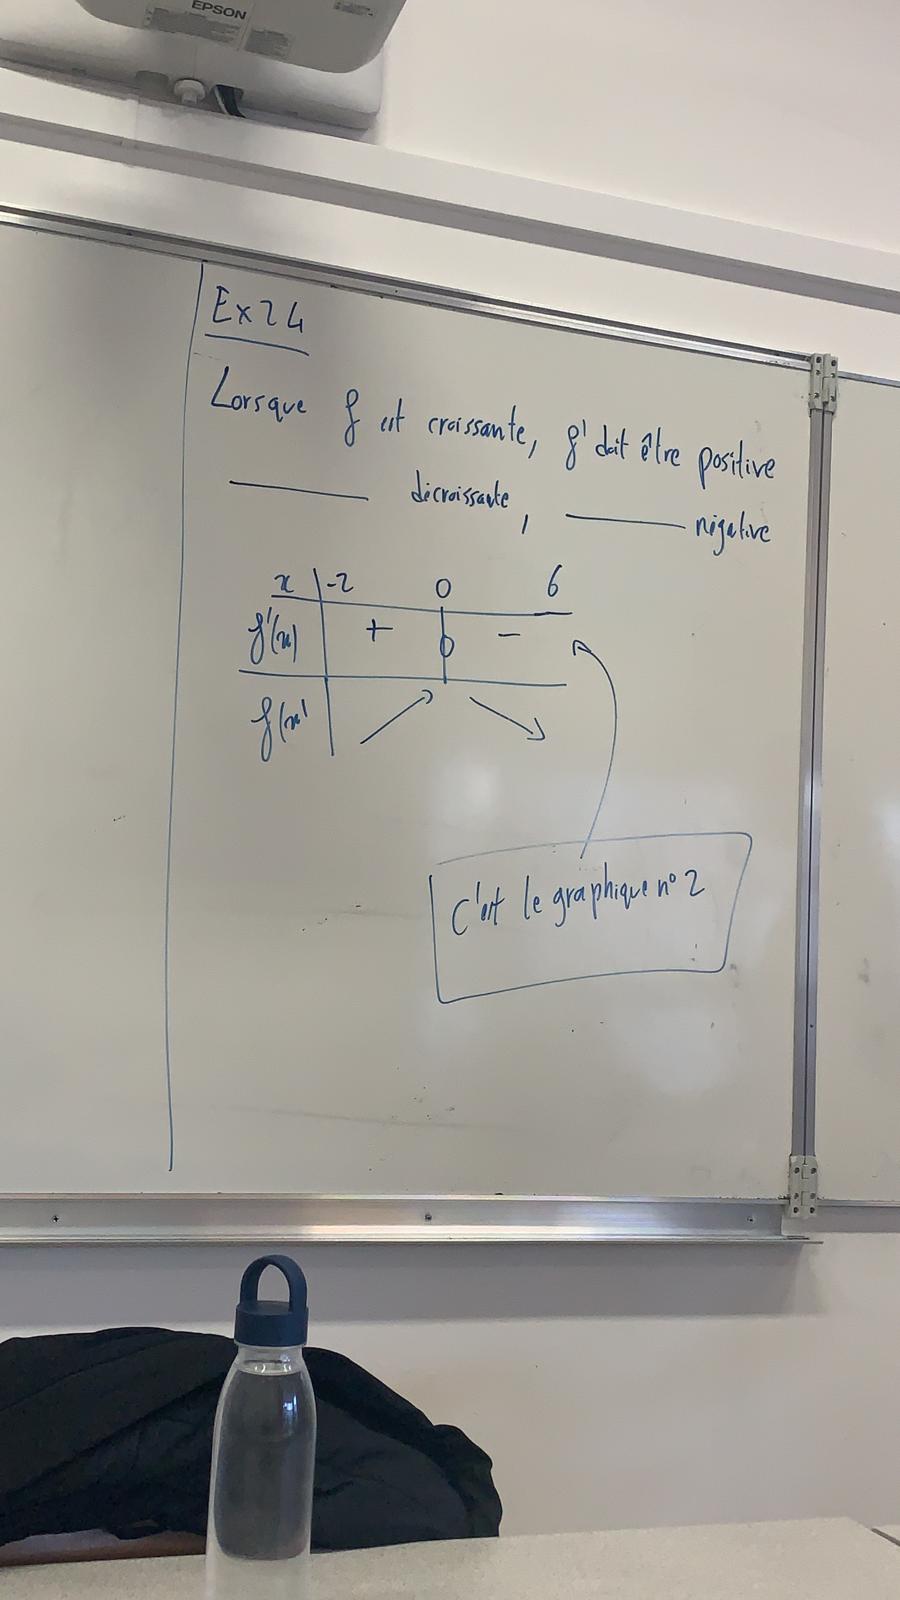 EPSON
Ex 24
Lorsque f est croissante, f' doit être positive
——— décroissante, ——— négative
x -2 0 6
f'(x) + 0 -
f(x) ↗ ↘
C'est le graphique n° 2